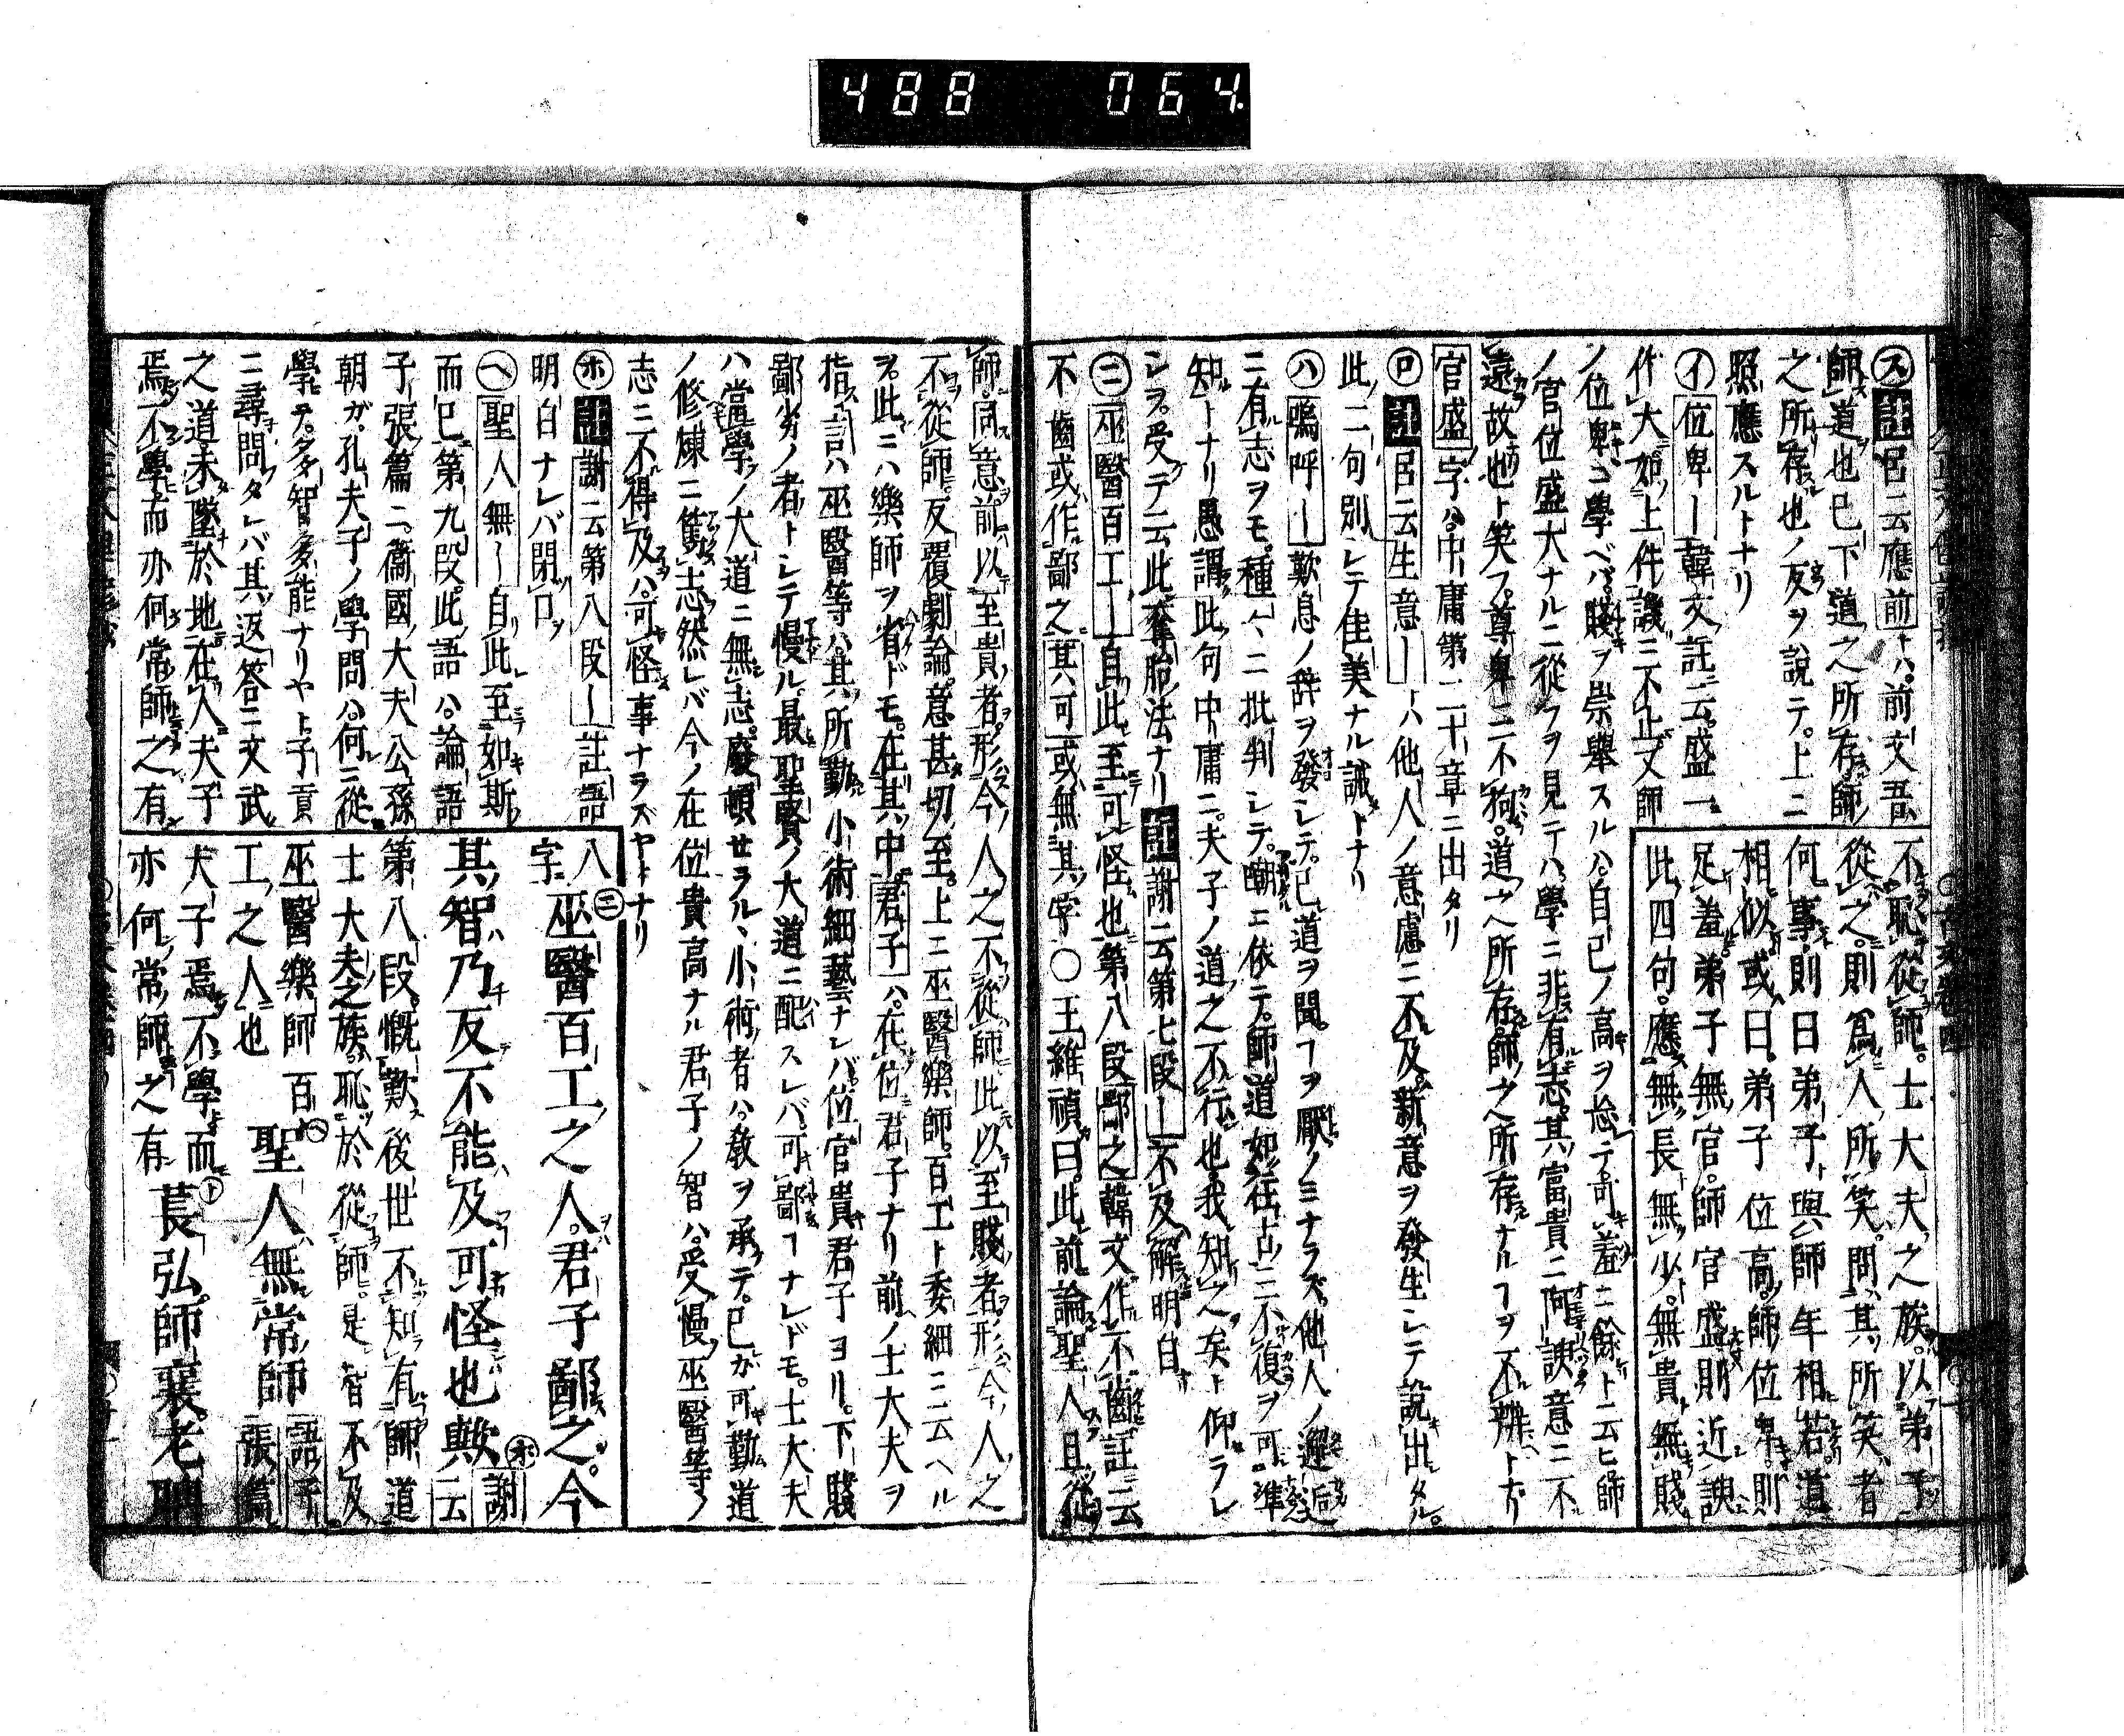 488 064
㋜註呂云應前トハ前文吾
師道也已下道之所存師
之所存也ノ反ヲ説テ上ニ
照應スルトナリ
㋑位卑ー韓文註云盛一
作大如上件議ニ不止又師
不恥從師士大夫之族以弟子
從之則爲人所笑問其所笑者
何事則曰弟子與師年相若道
相似或曰弟子位高師位卑則
足羞弟子無官師官盛則近諛
此四句應無長無少無貴無賤
ノ位卑コ學ベバ賤ヲ崇擧スルハ自己ノ高ヲ忘テ可羞ニ餘ト云ヒ師
ノ官位盛大ナルニ從フヲ見テハ學ニ非有志其富貴ニ阿諛意ニ不
遠故也ト笑フ尊卑ニ不拘道之所存師之所存ナルヿヲ不辨ト也
官盛字ハ中庸第二十章ニ出タリ
㋺註呂云生意ートハ他人ノ意慮ニ不及新意ヲ發生シテ説出タル
此二句別シテ佳美ナル誡トナリ
㋩嗚呼ー歎息ノ辞ヲ發シテ己道ヲ聞ヿヲ厭ノミナラズ他人ノ邂逅
ニ有志ヲモ種々ニ批判シテ嘲ニ依テ師道如在古ニ不復ヲ可準
知トナリ愚謂此句中庸ニ夫子ノ道之不行也我知之矣ト仰ラレ
シヲ受テ云此奪胎法ナリ註謝云第七段ー不及解明白
㋥巫醫百工ー自此至可怪也第八段鄙之韓文作不齒註云
不齒或作鄙之其可或無其字〇王維禎曰此前論聖人且從
師同意前以至貴者形今人之不從師此以至賤者形今人之
不從師反覆劇論意甚切至上ニ巫醫樂師百工ト委細ニ云ヘル
ヲ此ニハ樂師ヲ省ドモ在其中君子ハ在位君子ナリ前ノ士大夫ヲ
指言ハ巫醫等ハ其所勤小術細藝ナレバ位官貴君子ヨリ下賤
鄙劣ノ者トシテ慢ル最聖賢ノ大道ニ配スレバ可鄙ヿナレドモ士大夫
ハ當學ノ大道ニ無志廢頓セラル小術者ハ教ヲ承テ己ガ可勤道
ノ修煉ニ篤志然レバ今ノ在位貴高ナル君子ノ智ハ受慢巫醫等ノ
志ニ不得及ハ可怪事ナラズヤトナリ
㋭註謝云第八段ー註語
明白ナレバ閉口ヲ
㋬聖人無ー自此至如斯
而已第九段此語ハ論語
子張篇ニ衞國ノ大夫公孫
朝ガ孔夫子ノ學問ハ何ニ從
學テタダ智多能ナリヤト子貢
ニ尋問タレバ其返答ニ文武
之道未墜於地在人夫子
焉不學而亦何常師之有
八字
㋥巫醫百工之人君子鄙之今
其智乃反不能及可怪也歟㋭謝云
第八段慨歎後世不知有師道
士大夫之族恥於從師是智不及
巫醫樂師百
工之人也㋬聖人無常師語子張篇
夫子焉不學而
亦何常師之有㋣萇弘師襄老聃